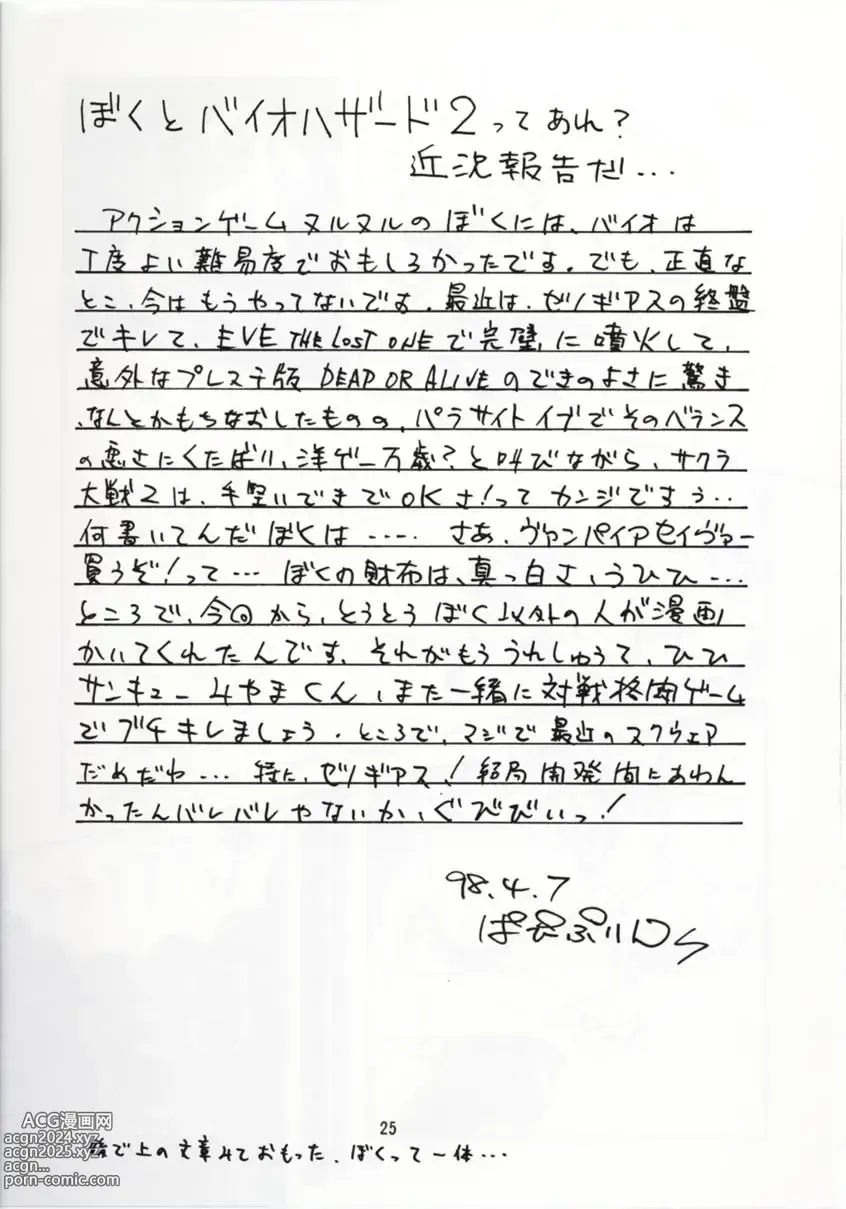 ぼくとバイオハザード2ってあれ?
近況報告だ...
アクションゲームヌルヌルのぼくには、バイオは
丁度よい難易度でおもしろかったです。でも、正直な
とこ、今はもうやってないです。最近は、ゼノギアスの終盤
でキレて、EVE THE LOST ONEで完璧に噴火して、
意外なプレステ版 DEAD OR ALIVEのできのよさに驚き
、なんとかもちなおしたものの、パラサイトイブでそのバランス
の悪さにくたばり、洋ゲー万歳?と叫びながら、サクラ
大戦2は、手堅いできでOKさ!ってカンジですぅ...
何書いてんだぼくは..... さあ、ヴァンパイアセイヴァー
買うぞ!って... ぼくの財布は、真っ白さ、うひひ...
ところで、今回から、とうとうぼく以外の人が漫画
かいてくれたんです、それがもううれしゅうて、ひひ
サンキューみやまくん、また一緒に対戦格闘ゲーム
でブチキレましょう。ところで、マジで最近のスクウェア
だめだわ... 特に、ゼノギアス!結局開発間にあわん
かったんバレバレやないか、ぐびびいっ!
98.4.7
25
後で上の文章みておもった、ぼくって一体...
ACG漫画网
acgn2024.xyz
acgn2025.xyz
acgn...
porn-comic.com